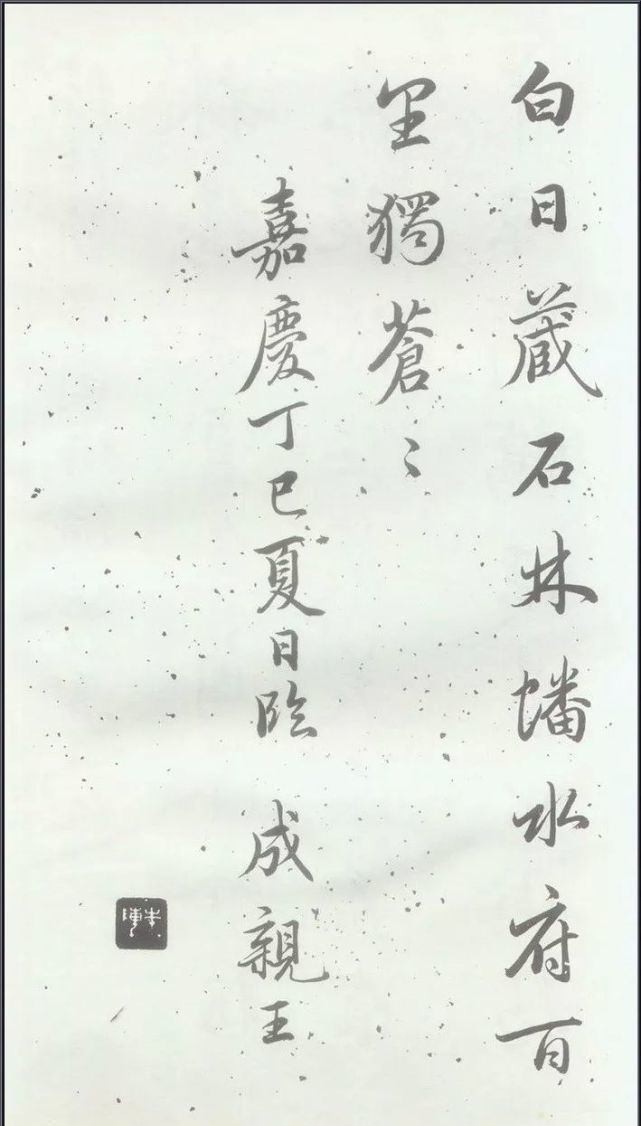 白日蔵石林蟠水府百
里獨蒼〻
嘉慶丁巳夏日臨 成親王